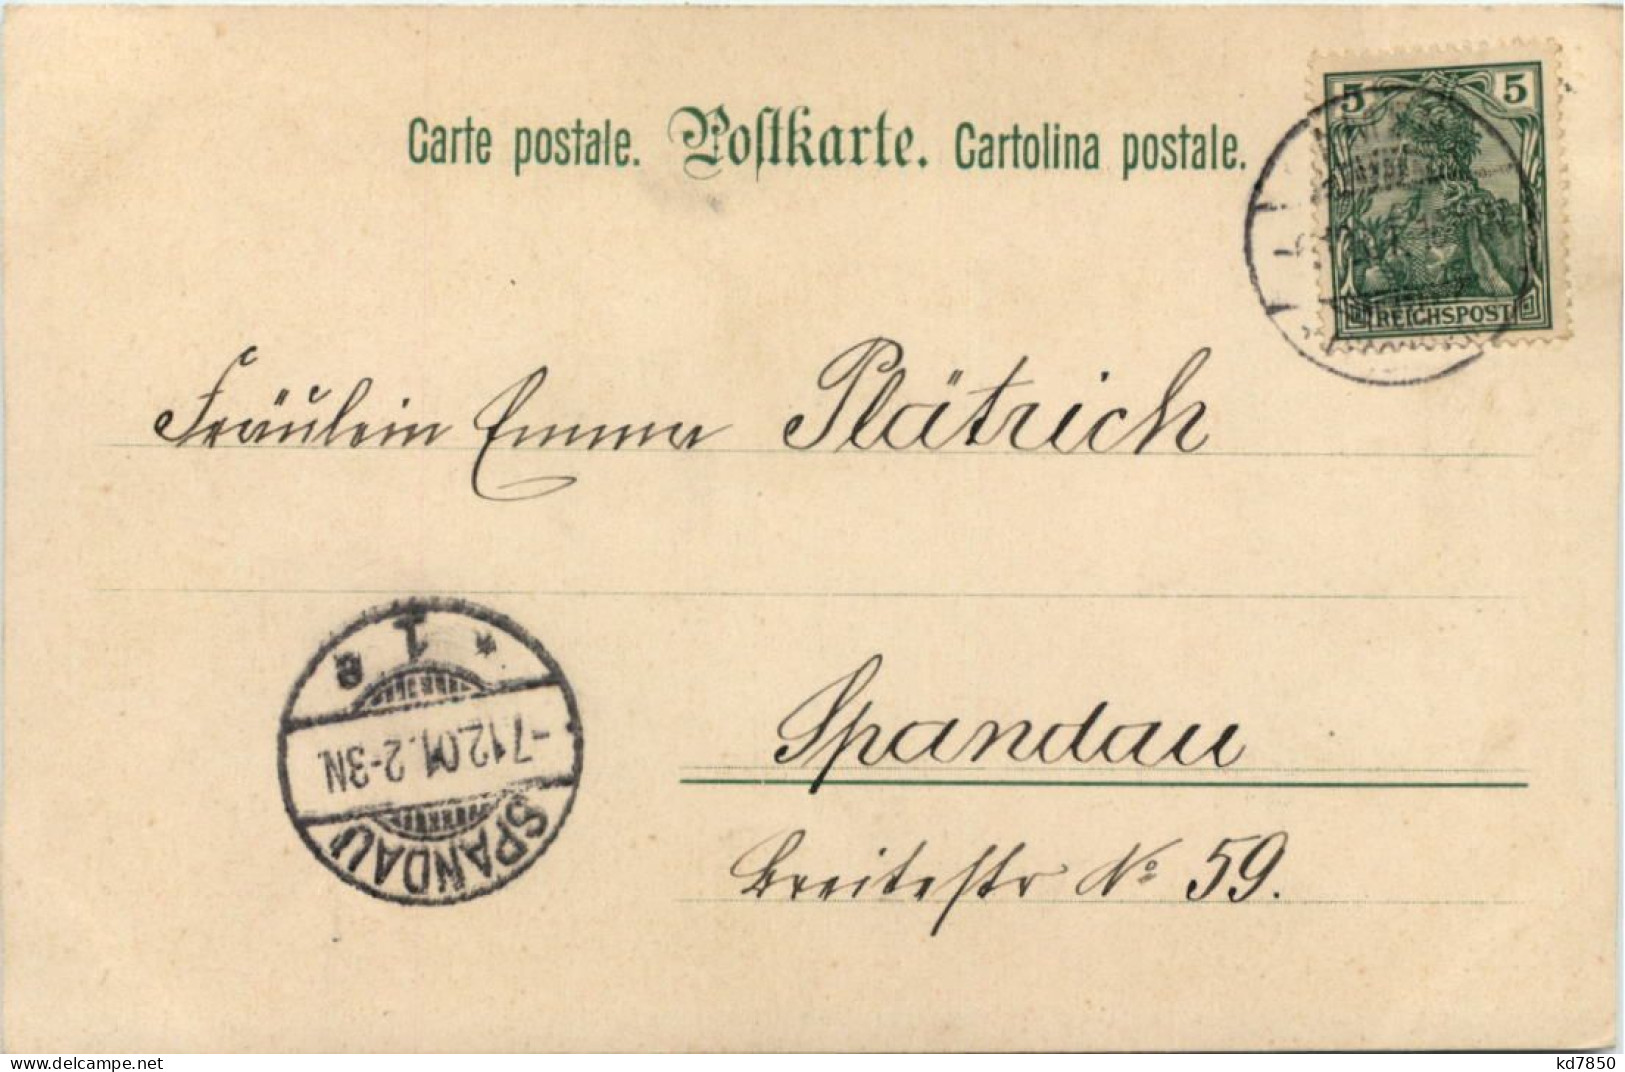 Carte postale. Postkarte. Cartolina postale.
5 5
REICHSPOST
Fräulein Emma Plätrich
Spandau
Breitestr No 59.
* 1 e
-7.12.01. 2-3N.
SPANDAU
delcampe.net
kd7850